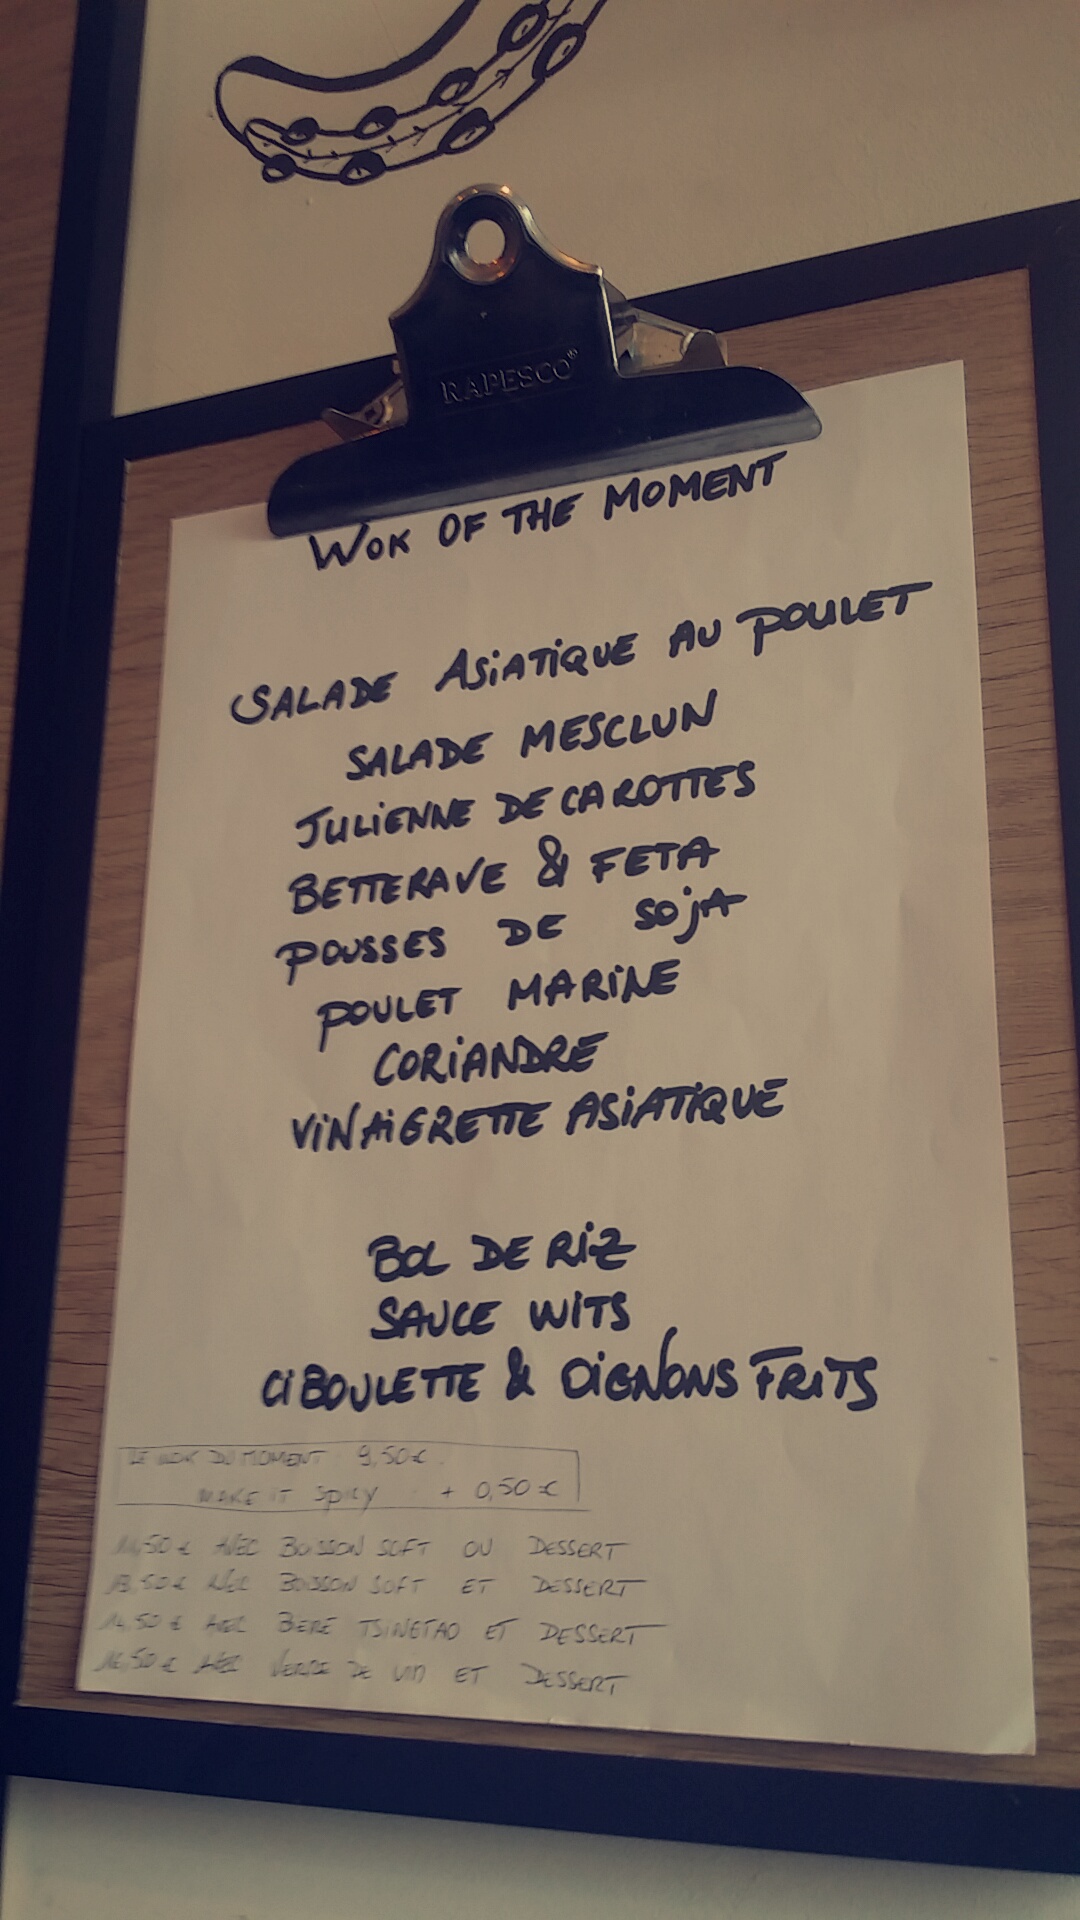 RAPESCO®
WOK OF THE MOMENT
SALADE ASIATIQUE AU POULET
SALADE MESCLUN
JULIENNE DE CAROTTES
BETTERAVE & FETA
POUSSES DE SOJA
POULET MARINE
CORIANDRE
VINAIGRETTE ASIATIQUE
BOL DE RIZ
SAUCE WITS
CIBOULETTE & OIGNONS FRITS
LE WOK DU MOMENT : 9,50€
MAKE IT SPICY + 0,50€
AVEC BOISSON SOFT OU DESSERT
13,50€ AVEC BOISSON SOFT ET DESSERT
14,50€ AVEC BIERE TSINGTAO ET DESSERT
AVEC VERRE DE VIN ET DESSERT